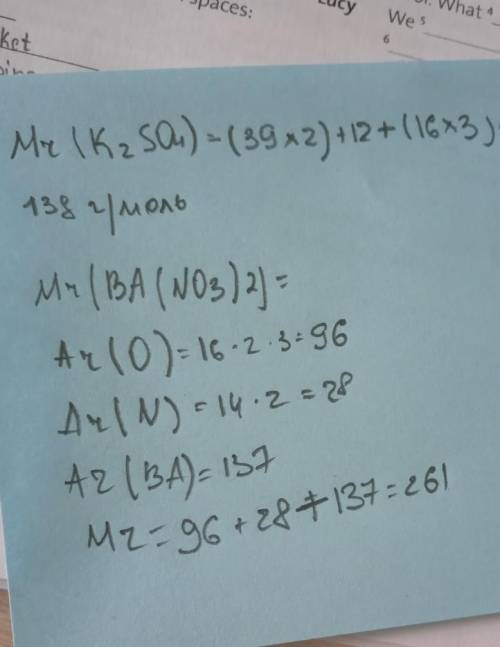 spaces:
Lucy
What 4
We 5
6
ket
Mr (K₂SO₄) = (39 × 2) + 12 + (16 × 3) =
138 г/моль
Mr (BA (NO3) 2) =
Ar (O) = 16 · 2 · 3 = 96
Ar (N) = 14 · 2 = 28
Ar (BA) = 137
Mr = 96 + 28 + 137 = 261